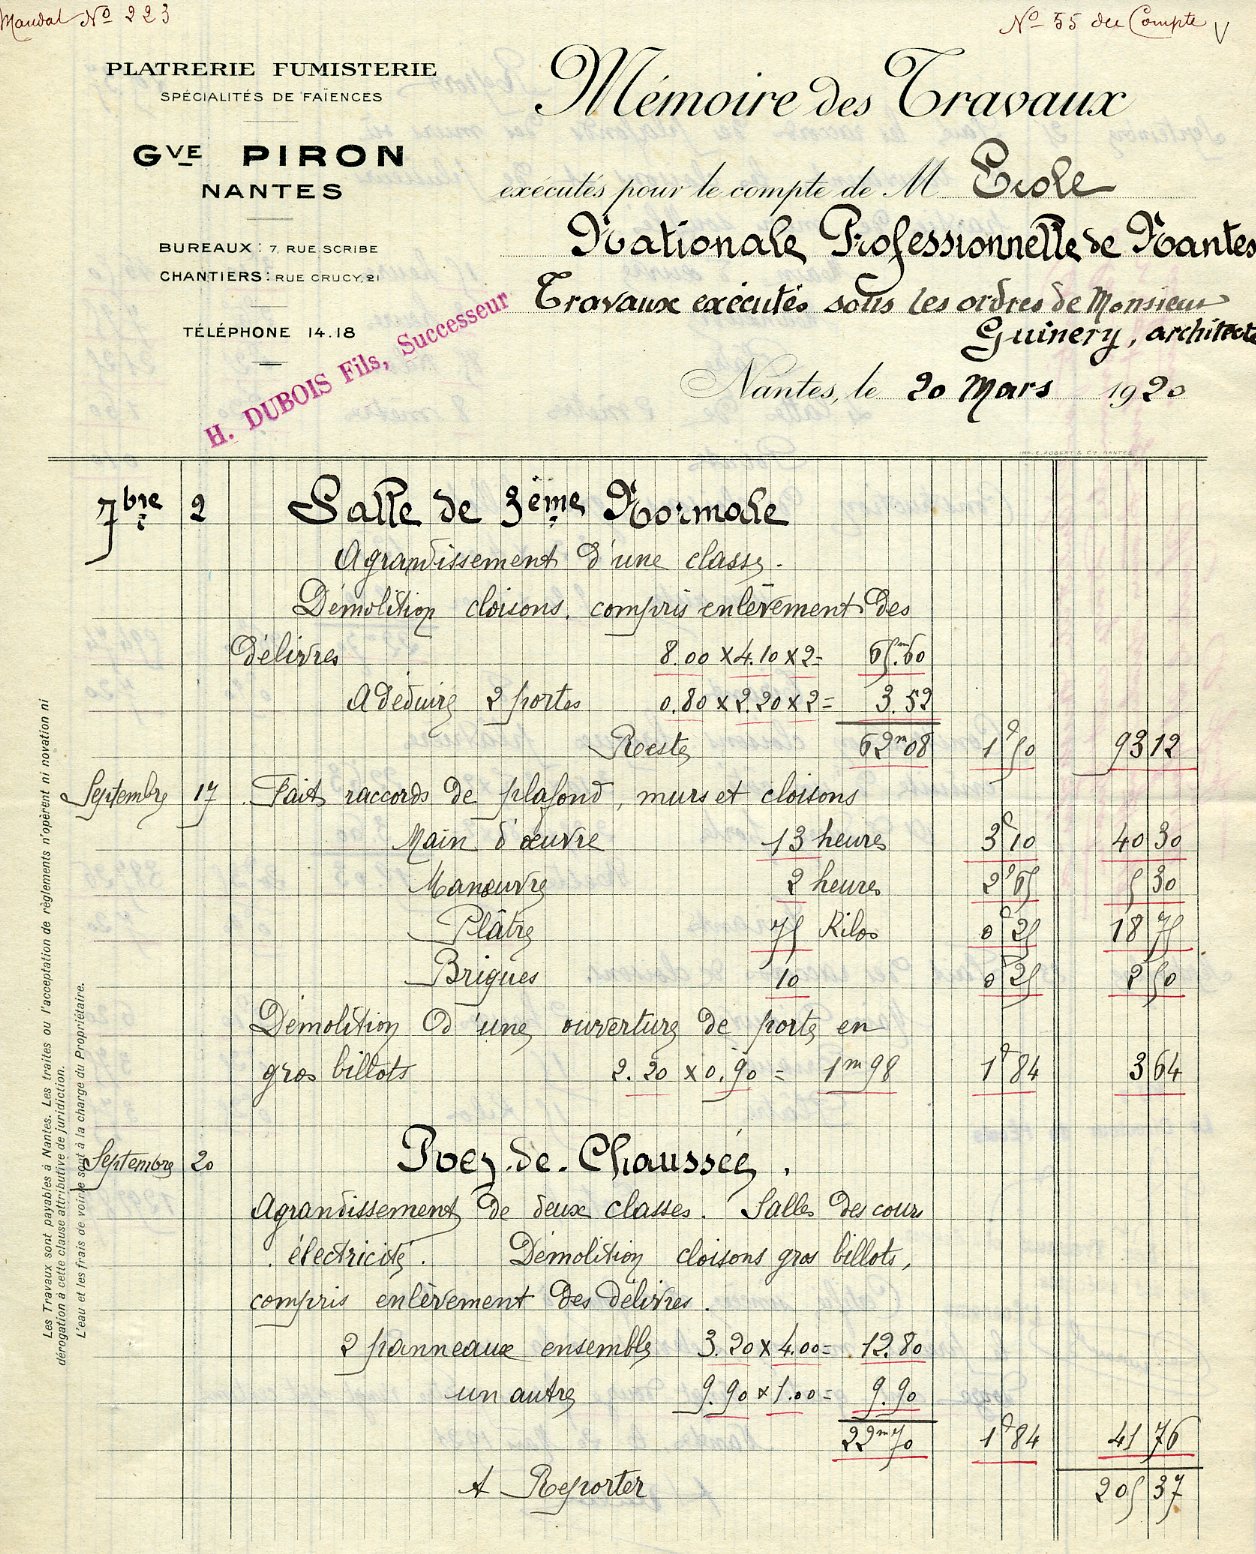 Mandat No 223
No 55 du Compte V
PLATRERIE FUMISTERIE
SPÉCIALITÉS DE FAÏENCES
GVE PIRON
NANTES
BUREAUX : 7, RUE SCRIBE
CHANTIERS : RUE CRUCY, 21
TÉLÉPHONE 14.18
H. DUBOIS Fils, Successeur
Mémoire des Travaux
exécutés pour le compte de M Ecole
Nationale Professionnelle de Nantes
Travaux exécutés sous les ordres de Monsieur
Guinery, architecte
Nantes, le 20 Mars 1920
IMP. E. ROBERT & Cie NANTES
7bre 2 Salle de 3ème Normale
Agrandissement d'une classe.
Démolition cloisons, compris enlèvement des
délivres 8.00 x 4.10 x 2 = 65m60
A déduire 2 portes 0.80 x 2.20 x 2 = 3.52
Reste 62m08 1f50 93 12
Septembre 17 Fait raccords de plafond, murs et cloisons
Main d'œuvre 13 heures 3f10 40 30
Manœuvre 2 heures 2f65 5 30
Plâtre 75 Kilos 0f25 18 75
Briques 10 0f25 2 50
Démolition d'une ouverture de porte en
gros billots 2.20 x 0.90 = 1m98 1f84 3 64
Septembre 20 Rez-de-Chaussée.
Agrandissement de deux classes. Salles des cours
électricité. Démolition cloisons gros billots,
compris enlèvement des délivres.
2 panneaux ensemble 3.20 x 4.00 = 12.80
un autre 9.90 x 1.00 = 9.90
22m70 1f84 41 76
A Reporter 205 37
Les Travaux sont payables à Nantes. Les traites ou l'acceptation de règlements n'opèrent ni novation ni
dérogation à cette clause attributive de juridiction.
L'eau et les frais de voirie sont à la charge du Propriétaire.